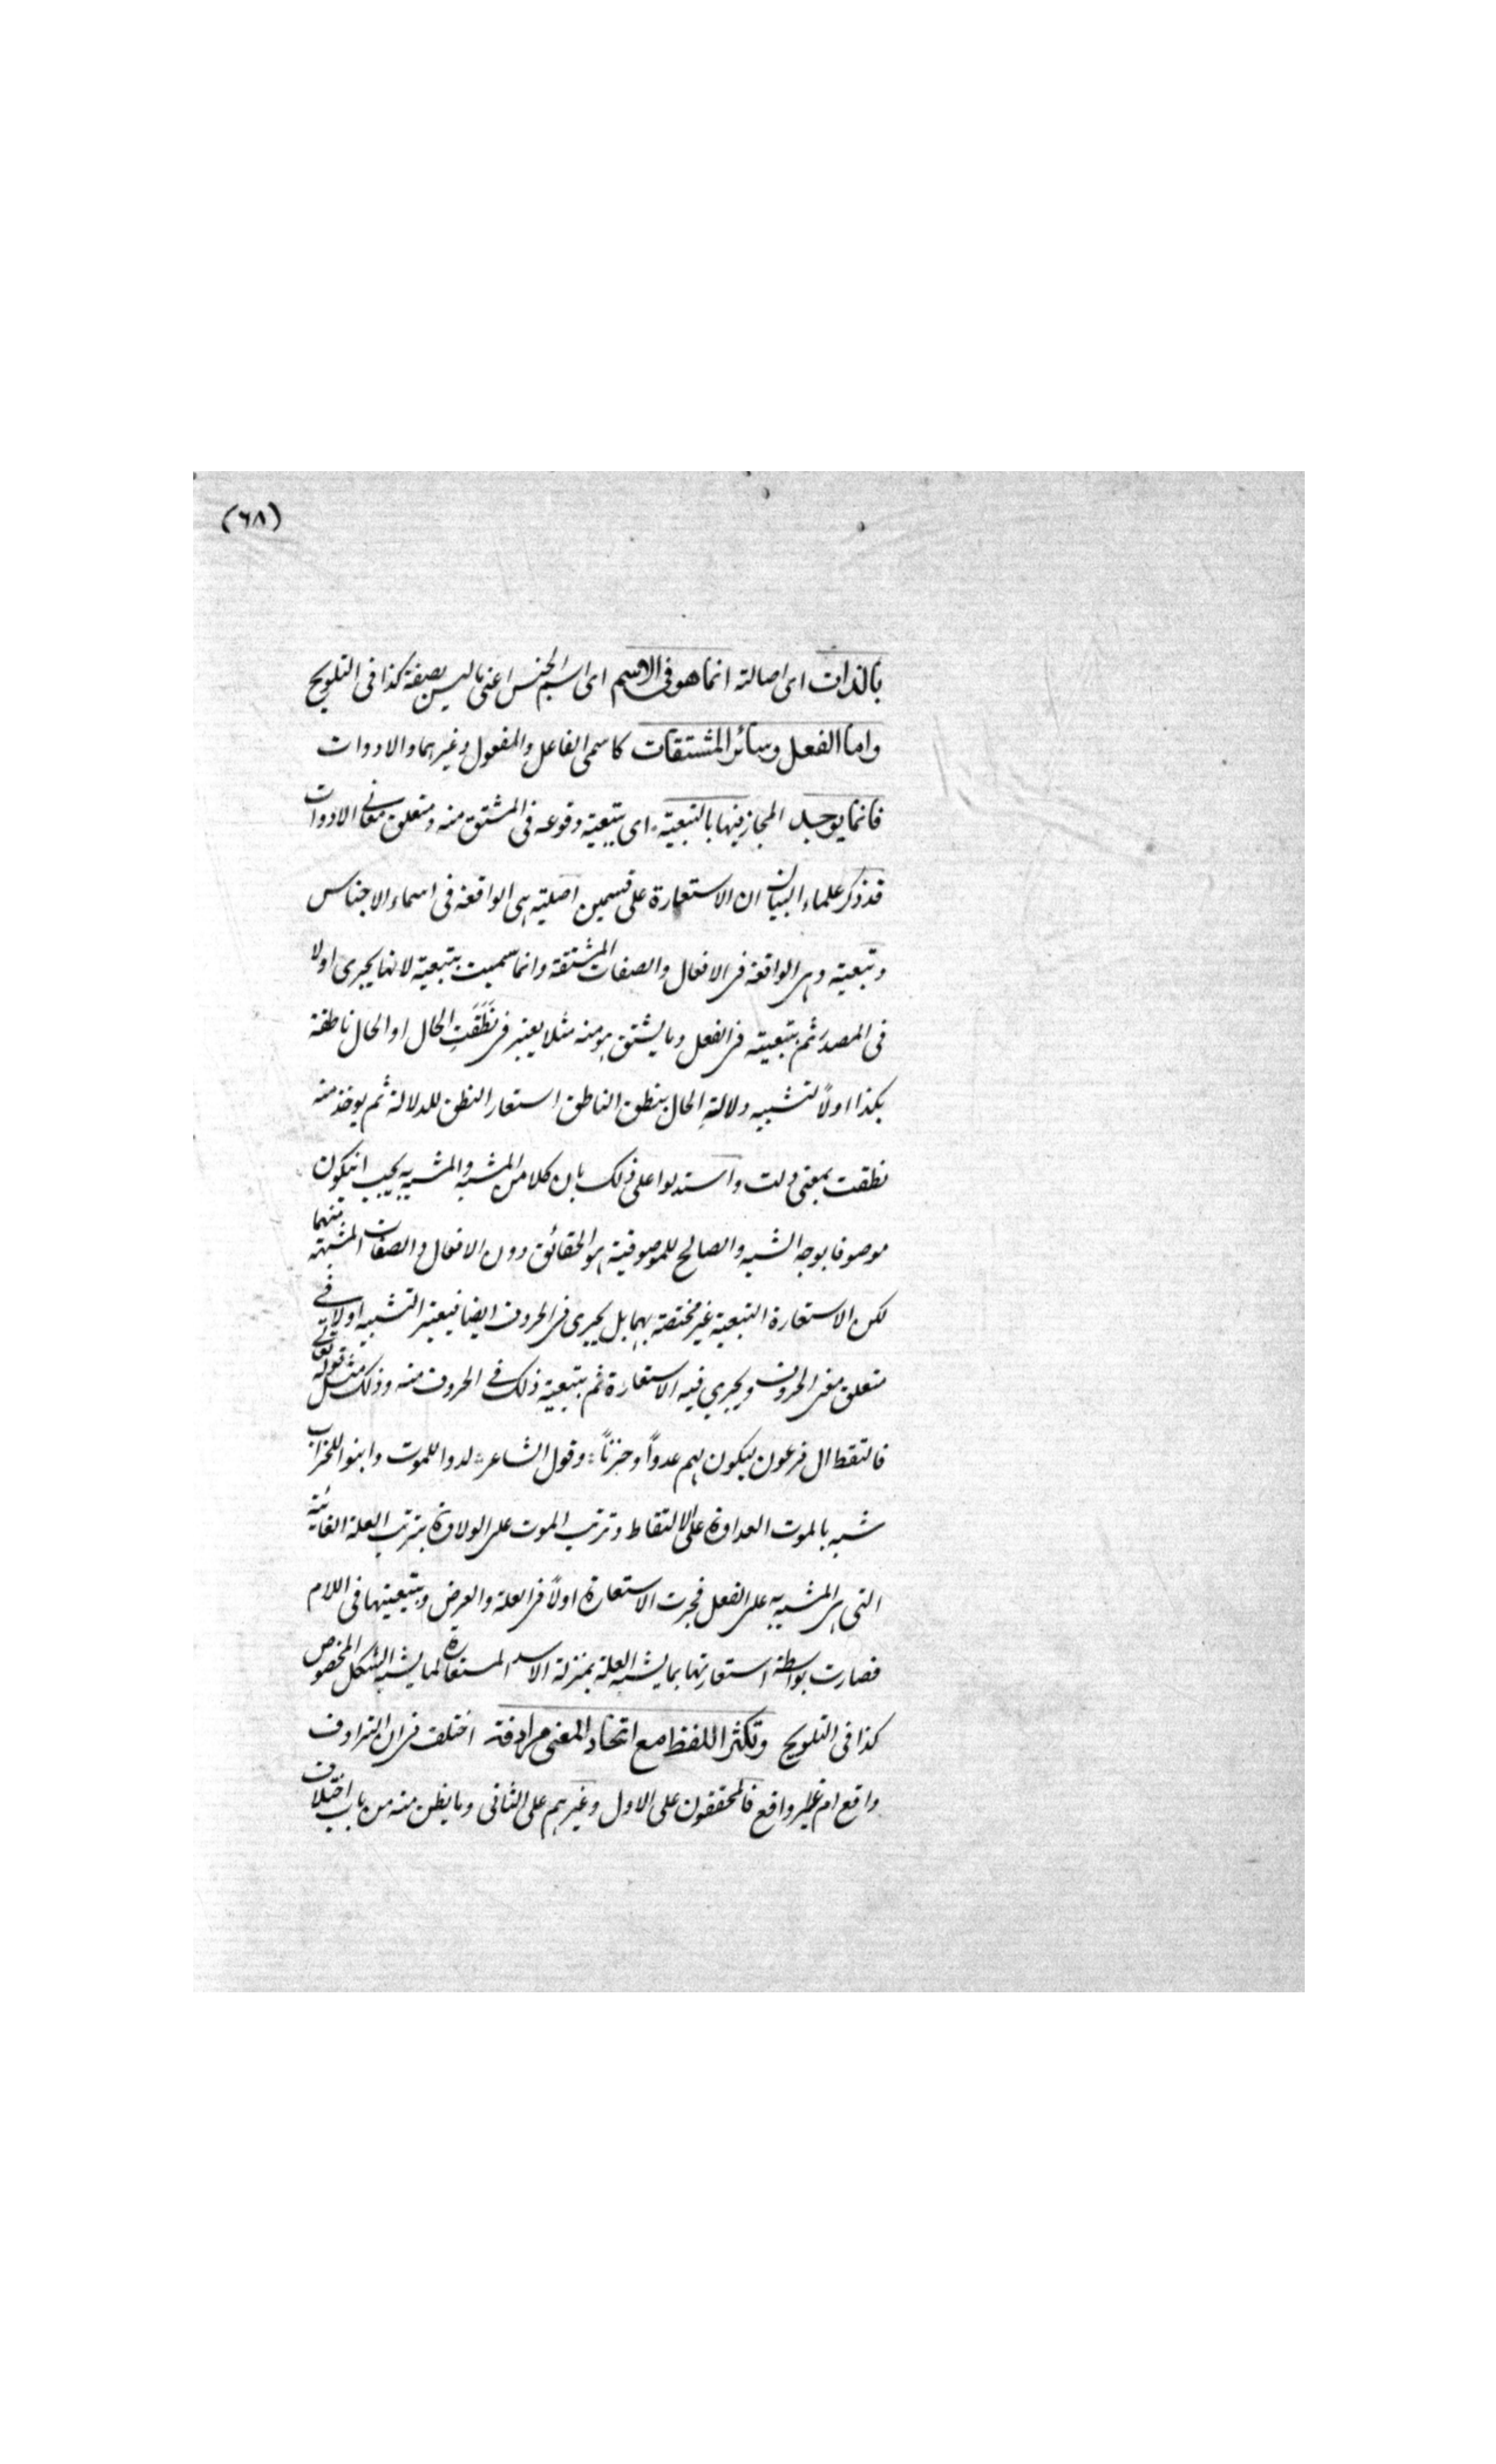 (٦٨)
بالذات اى اصالة انما هو فى الاسم اى اسم الجنس اعنى ما ليس بصفة كذا فى التلويح
واما الفعل وسائر المشتقات كاسمى الفاعل والمفعول وغيرهما والادوات
فانما يوجد المجاز فيها بالتبعية اى بتبعية وقوعه فى المشتق منه ومتعلق معانى الادوات
قد ذكر علماء البيان ان الاستعارة على قسمين اصلية هى الواقعة فى اسماء الاجناس
وتبعية وهى الواقعة فى الافعال والصفات المشتقة وانما سميت بتبعية لانها يجرى اولا
فى المصدر ثم بتبعيته فى الفعل وما يشتق هو منه مثلا يعتبر فى نَطَقَتِ الحال او الحال ناطقة
بكذا اولاً تشبيه دلالةِ الحال بنطق الناطق استعار النطق للدلالة ثم يوخذ منه
نطقت بمعنى دلت واستدلوا على ذلك بان كلا من المشبه والمشبه به يجب انيكون
موصوفا بوجه الشبه والصالح للموصوفية هو الحقائق دون الافعال والصفات المشبهة منهما
لكن الاستعارة التبعية غير مختصة بهما بل يجرى فى الحروف ايضا فيعتبر التشبيه اولا فى
متعلق معنى الحروف ويجرى فيه الاستعارة ثم بتبعية ذلك فى الحروف منه وذلك مثل قوله تعالى
فالتقطه ال فرعون ليكون لهم عدوا وحزناً وقول الشاعر لدوا للموت وابنوا للخراب
شبه بالموت العداوة على الالتقاط وترتب الموت على الولادة بترتب العلة الغائية
التى هى المشبه به على الفعل فجرت الاستعارة اولاً فى العلة والغرض وبتبعيتها فى اللام
فصارت بواسطة استعارتها بما يشبه العلة بمنزلة الاسد المستعارة لما يشبه الشكل المخصوص
كذا فى التلويح وتكثر اللفظ مع اتحاد المعنى مرادفة اختلف فى ان الترادف
واقع ام غير واقع فالمحققون على الاول وغيرهم على الثانى وما يظن منه من باب اختلاف